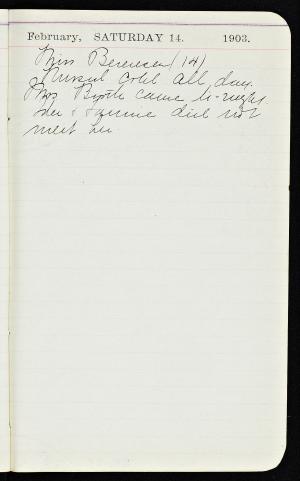 February, SATURDAY 14. 1903.
Miss Berenson (14)
Nursed Cold all day.
Mrs Booth came to-night
her & Fannie did not
meet her